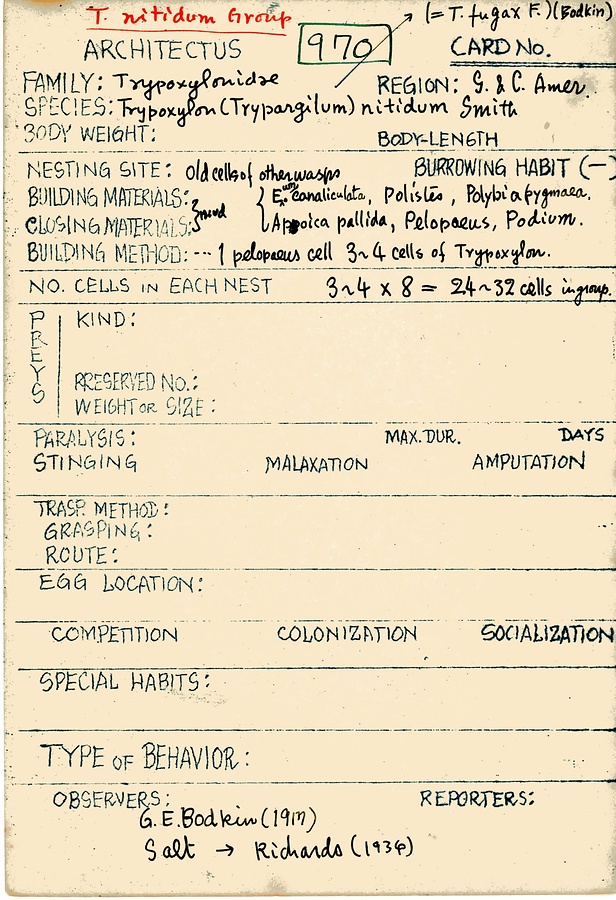 T. nitidum Group
(= T. fugax F.)(Bodkin)
ARCHITECTUS 970 CARD No.
FAMILY: Trypoxylonidae REGION: S. & C. Amer.
SPECIES: Trypoxylon (Trypargilum) nitidum Smith
BODY WEIGHT: BODY-LENGTH
NESTING SITE: Old cells of other wasps BURROWING HABIT (—)
BUILDING MATERIALS: } mud { Eum. canaliculata, Polistes, Polybia pygmaea.
CLOSING MATERIALS: Appoica pallida, Pelopaeus, Podium.
BUILDING METHOD: --- 1 pelopaeus cell 3~4 cells of Trypoxylon.
NO. CELLS IN EACH NEST 3~4 x 8 = 24~32 cells in group.
PREYS KIND:
PRESERVED NO.:
WEIGHT OR SIZE:
PARALYSIS: MAX.DUR. DAYS
STINGING MALAXATION AMPUTATION
TRASP. METHOD:
GRASPING:
ROUTE:
EGG LOCATION:
COMPETITION COLONIZATION SOCIALIZATION
SPECIAL HABITS:
TYPE OF BEHAVIOR:
OBSERVERS: REPORTERS:
G.E.Bodkin (1917)
Salt → Richards (1934)